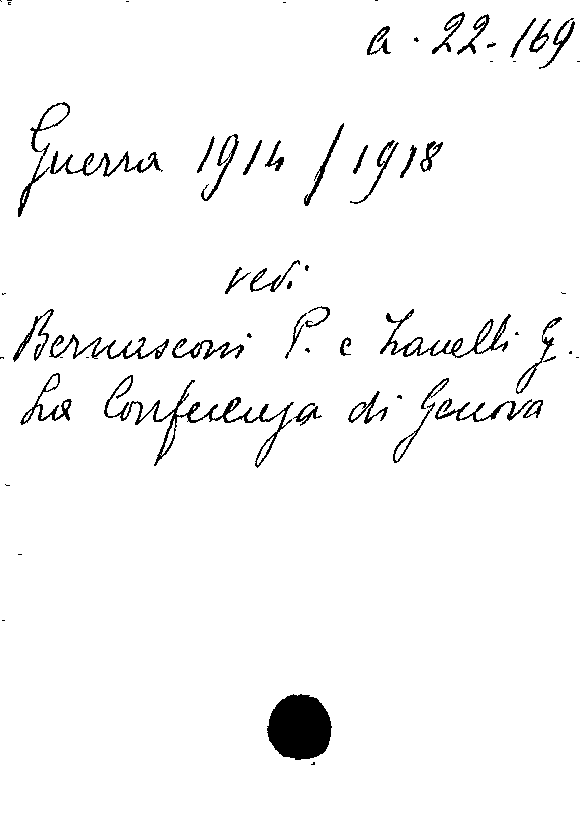 a. 22-169
Guerra 1914/1918
vedi
Bernasconi P. e Zanelli G.
La Conferenza di Genova